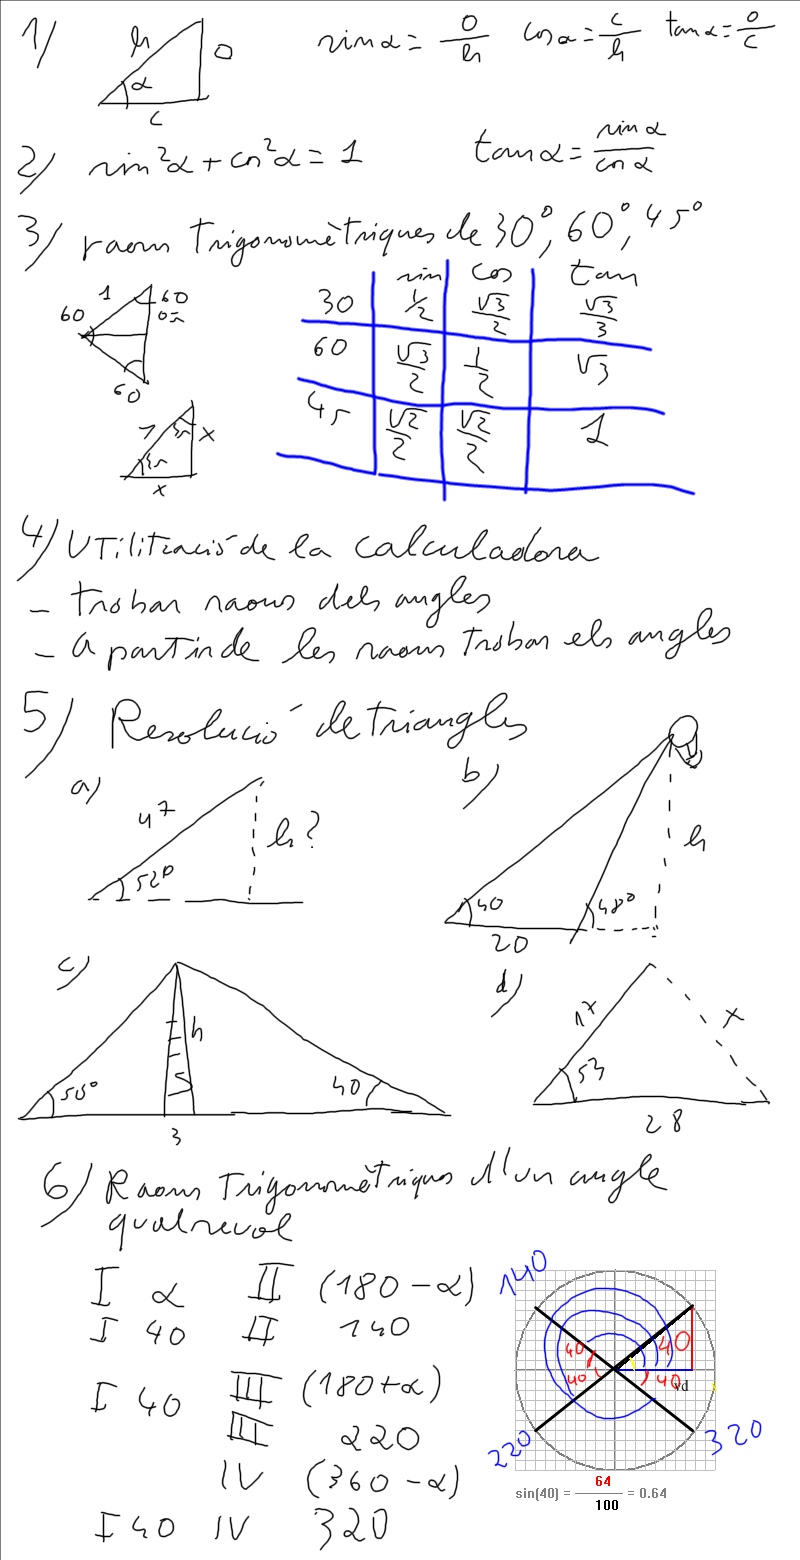 1) h O α c sinα = O/h cosα = c/h tanα = o/c
2) sin²α + cos²α = 1 tanα = sinα/cosα
3) raons trigonomètriques de 30°, 60°, 45°
sin cos tan
30 1/2 √3/2 √3/3
60 √3/2 1/2 √3
45 √2/2 √2/2 1
1 60 60 60
1 45 45 x x
4) Utilització de la calculadora
- trobar raons dels angles
- a partir de les raons trobar els angles
5) Resolució de triangles
a) 47 52° h?
b) 40 48° h 20
c) 50° h 40 3
d) 17 53 x 28
6) Raons trigonomètriques d'un angle
qualsevol
I α II (180-α)
I 40 II 140
I 40 III (180+α)
III 220
IV (360-α)
I 40 IV 320
140
40 40
40 40
220 320
sin(40) = 64/100 = 0.64